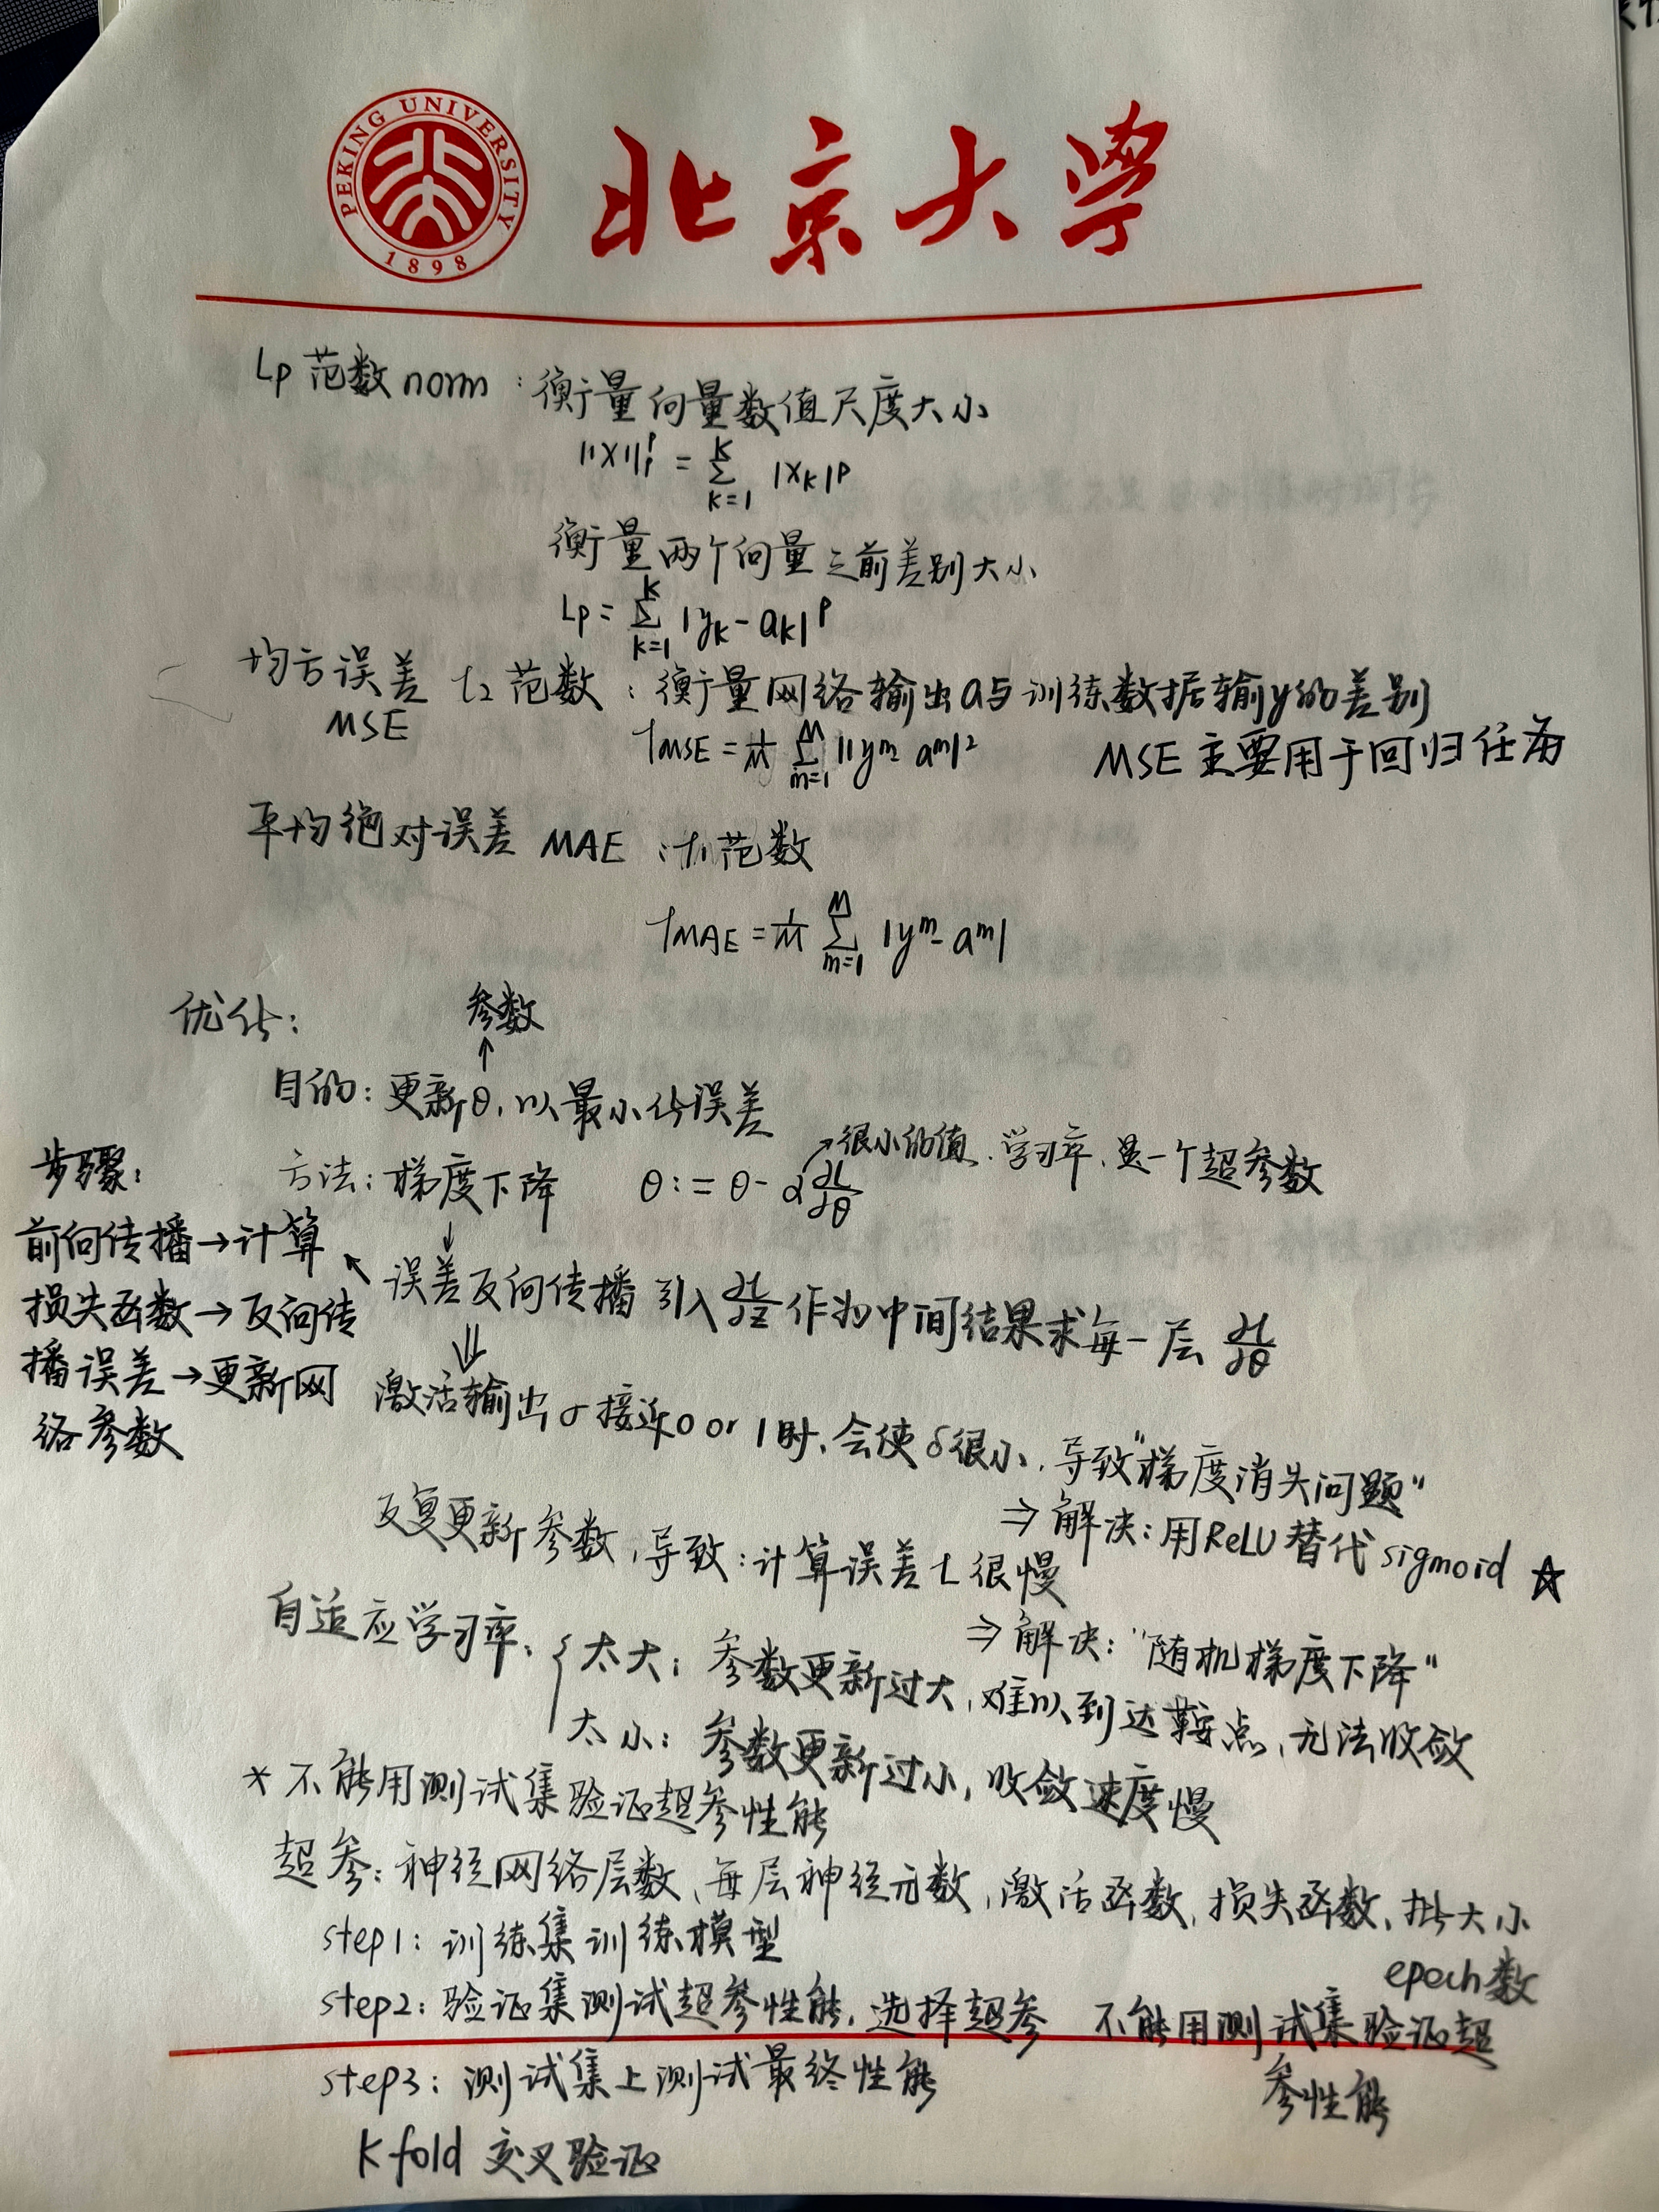 PEKING UNIVERSITY
1898
北京大学
Lp 范数 norm：衡量向量数值尺度大小
||X||ₚᵖ = Σ_{k=1}^{K} |x_k|^p
衡量两个向量之前差别大小
Lp = Σ_{k=1}^{K} |y_k - a_k|^p
均方误差 L₂ 范数：衡量网络输出a与训练数据输y的差别
MSE
L_MSE = 1/M Σ_{m=1}^{M} ||y^m - a^m||² MSE 主要用于回归任务
平均绝对误差 MAE：L₁范数
L_MAE = 1/M Σ_{m=1}^{M} |y^m - a^m|
优化：
参数
↑
目的：更新θ，以最小化误差
方法：梯度下降 θ := θ - α ∂L/∂θ
↗很小的值、学习率、是一个超参数
↓
误差反向传播 引入 ∂L/∂z 作为中间结果求每一层 ∂L/∂θ
步骤：
前向传播→计算
损失函数→反向传
播误差→更新网
络参数
⇓
激活输出σ接近0 or 1时，会使δ很小，导致"梯度消失问题"
⇒ 解决：用ReLU替代sigmoid ☆
反复更新参数，导致：计算误差L很慢
⇒ 解决："随机梯度下降"
自适应学习率：{ 太大：参数更新过大，难以到达鞍点，无法收敛
太小：参数更新过小，收敛速度慢
* 不能用测试集验证超参性能
超参：神经网络层数、每层神经元数，激活函数，损失函数、批大小
epoch数
step1：训练集训练模型
step2：验证集测试超参性能，选择超参 不能用测试集验证超
参性能
step3：测试集上测试最终性能
K fold 交叉验证